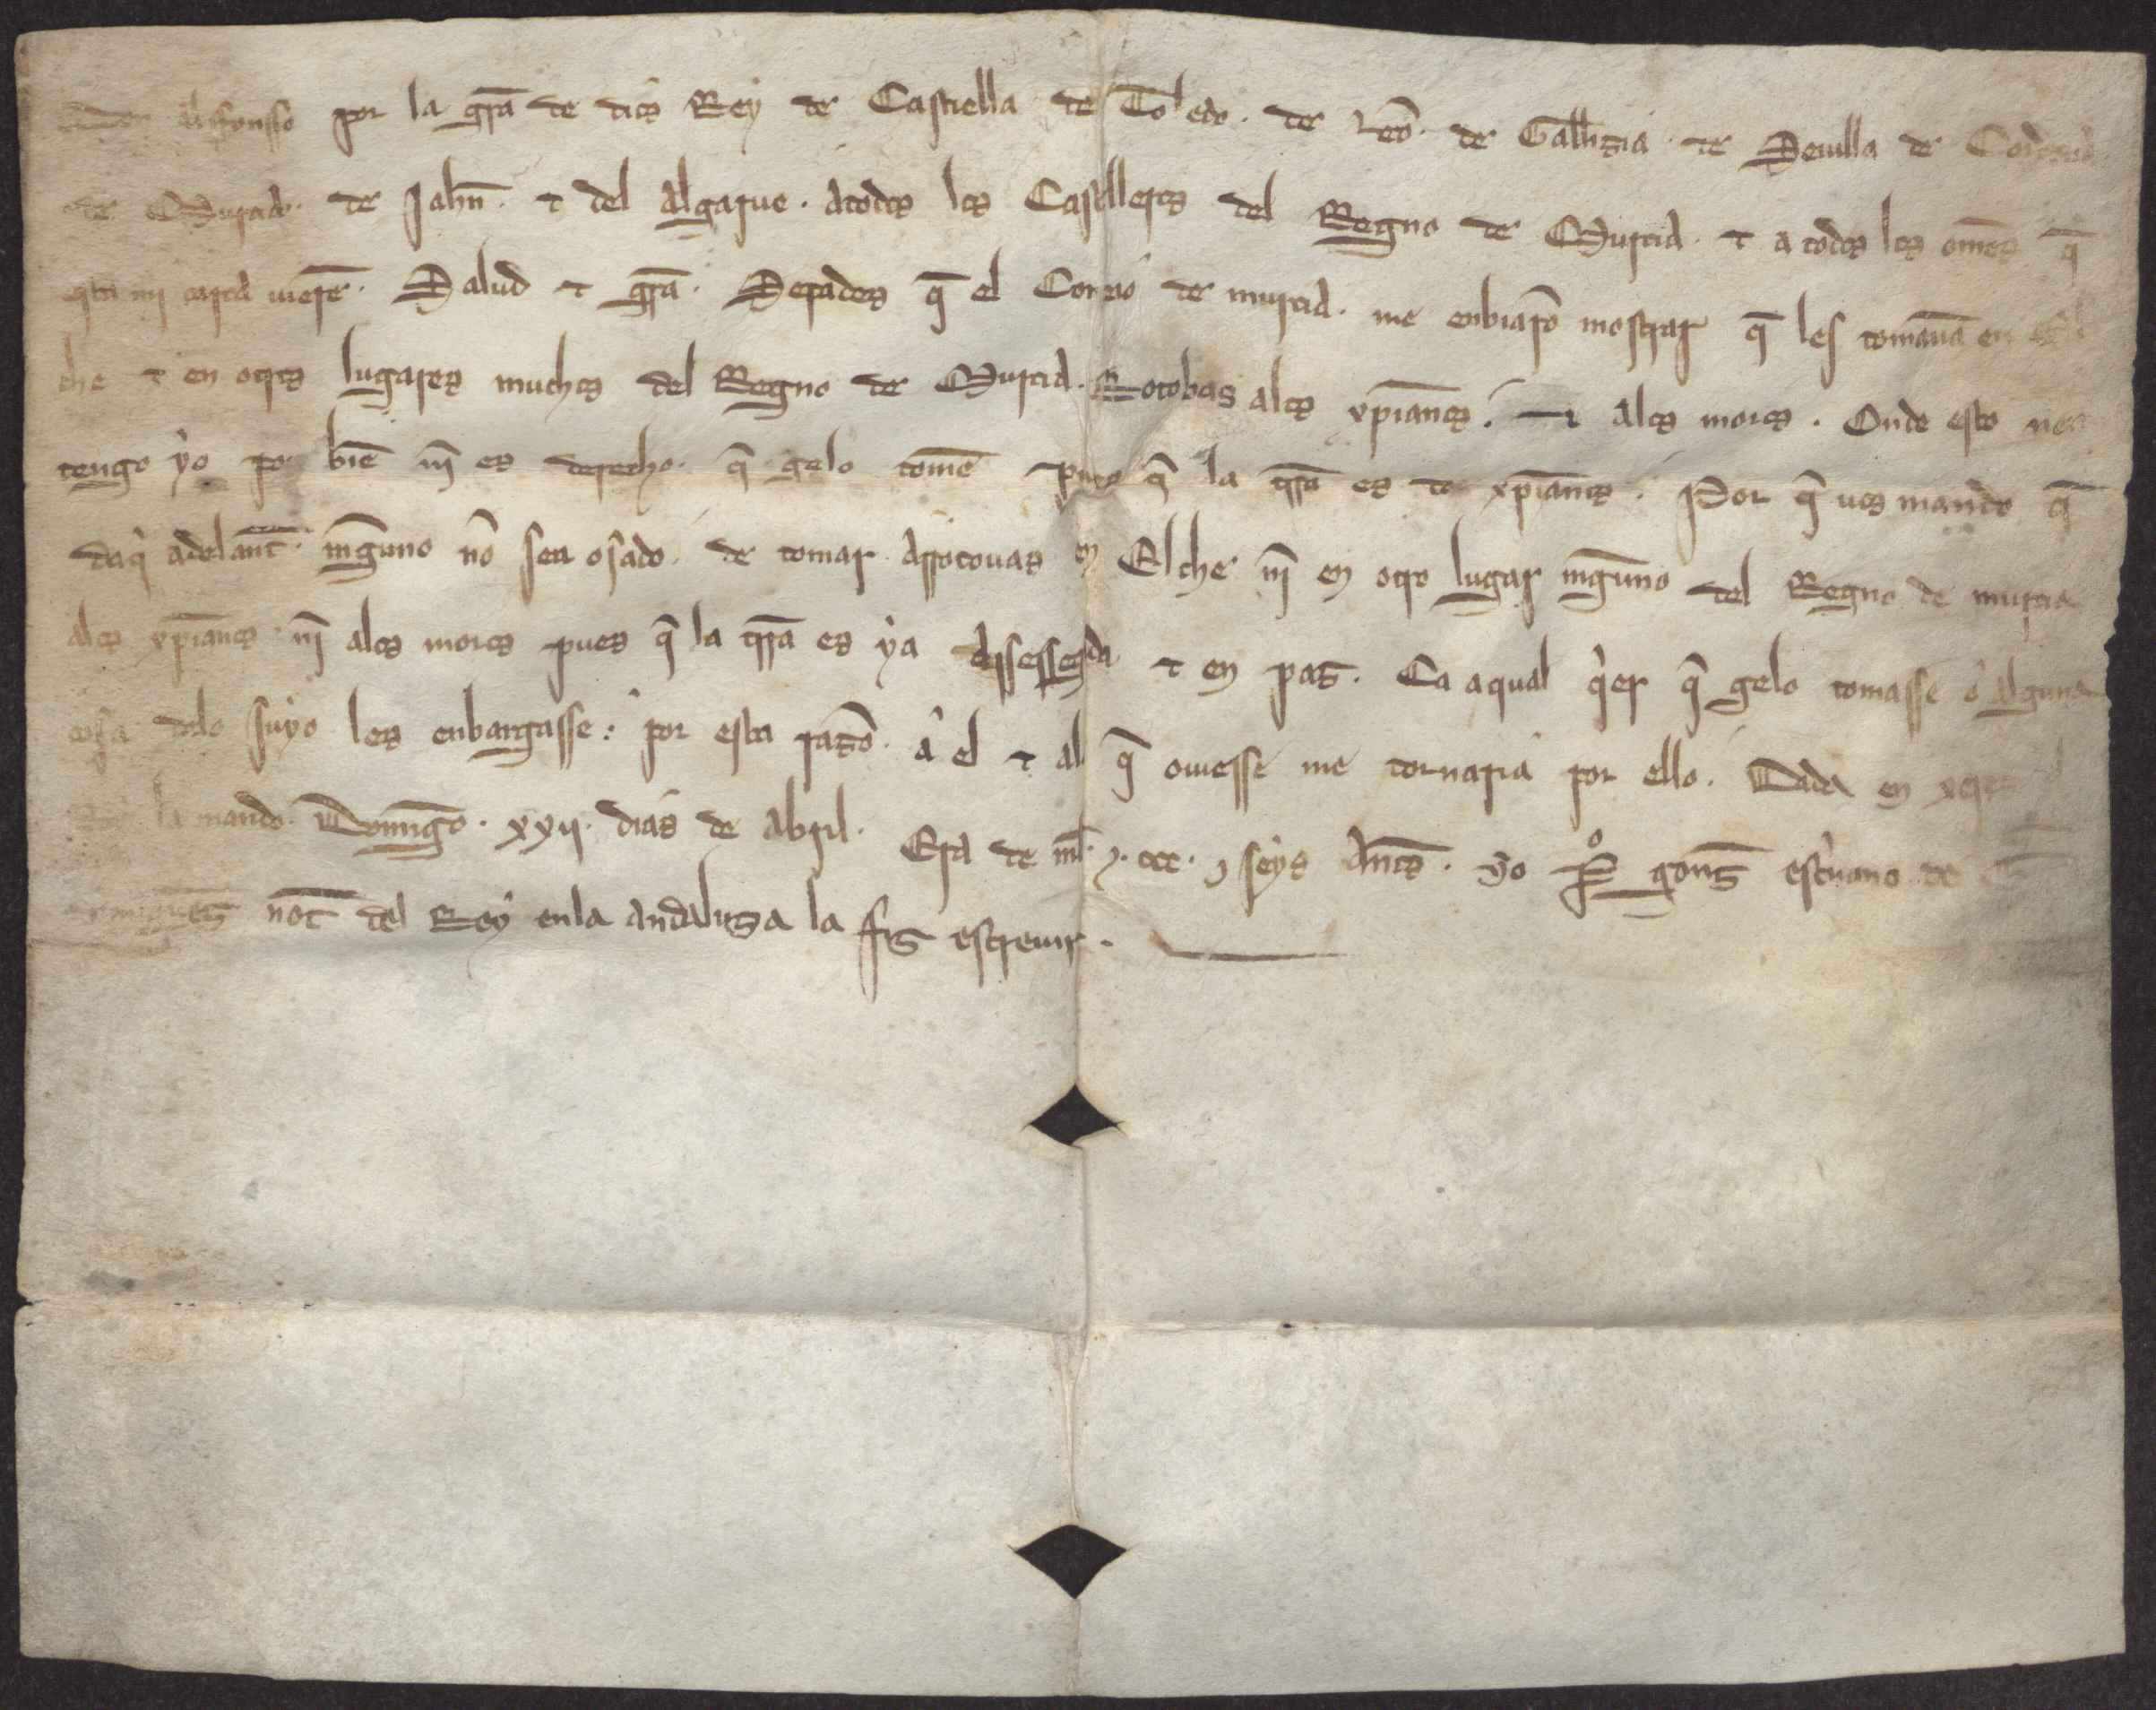 Don Alfonsso por la gr̃a de dios Rey de Castiella de Toledo . de Leõ . de Gallizia . de Seuilla de Cordoua
de Murcia . de Jahñ . ⁊ del Algarue . Atodos los Castelleros del Regno de Murcia . ⁊ a todos los omẽs q̃
esta mi carta uierẽ . Salud ⁊ gr̃a . Sepades q̃ el Conceio de murcia . me enbiarõ mostrar q̃ les tomauã en El
che ⁊ en otros lugares muchos del Regno de Murcia . Rotobas alos xp̃ianos . ⁊ alos moros . Onde esto non
tengo yo por biẽ nĩ es derecho . q̃ gelo tomẽ pues q̃ la tr̃ra es de xp̃ianos . Por q̃ uos mando q̃
daqi adelant̃ . nĩguno nõ sea osado . de tomar Arrotouas en Elche nĩ en otro lugar nĩguno del Regno de murcia
alos xp̃ianos . nĩ alos moros pues q̃ la tr̃ra es ya assessegada ⁊ en paz . Ca aqual qier q̃ gelo tomasse o alguna
cosa delo suyo les enbargasse : por esta razõ . a el ⁊ al q̃ ouiesse me tornaria por ello . Dada en xerez el
Rey la mando . Domĩgo . xxij . dias de Abril . Era de mĩll ⁊ . ccc . ⁊ seys Anos . yo P̃º gonz̃ escriuano de
not̃ del Rey enla Andaluzia la fiz escreuir .